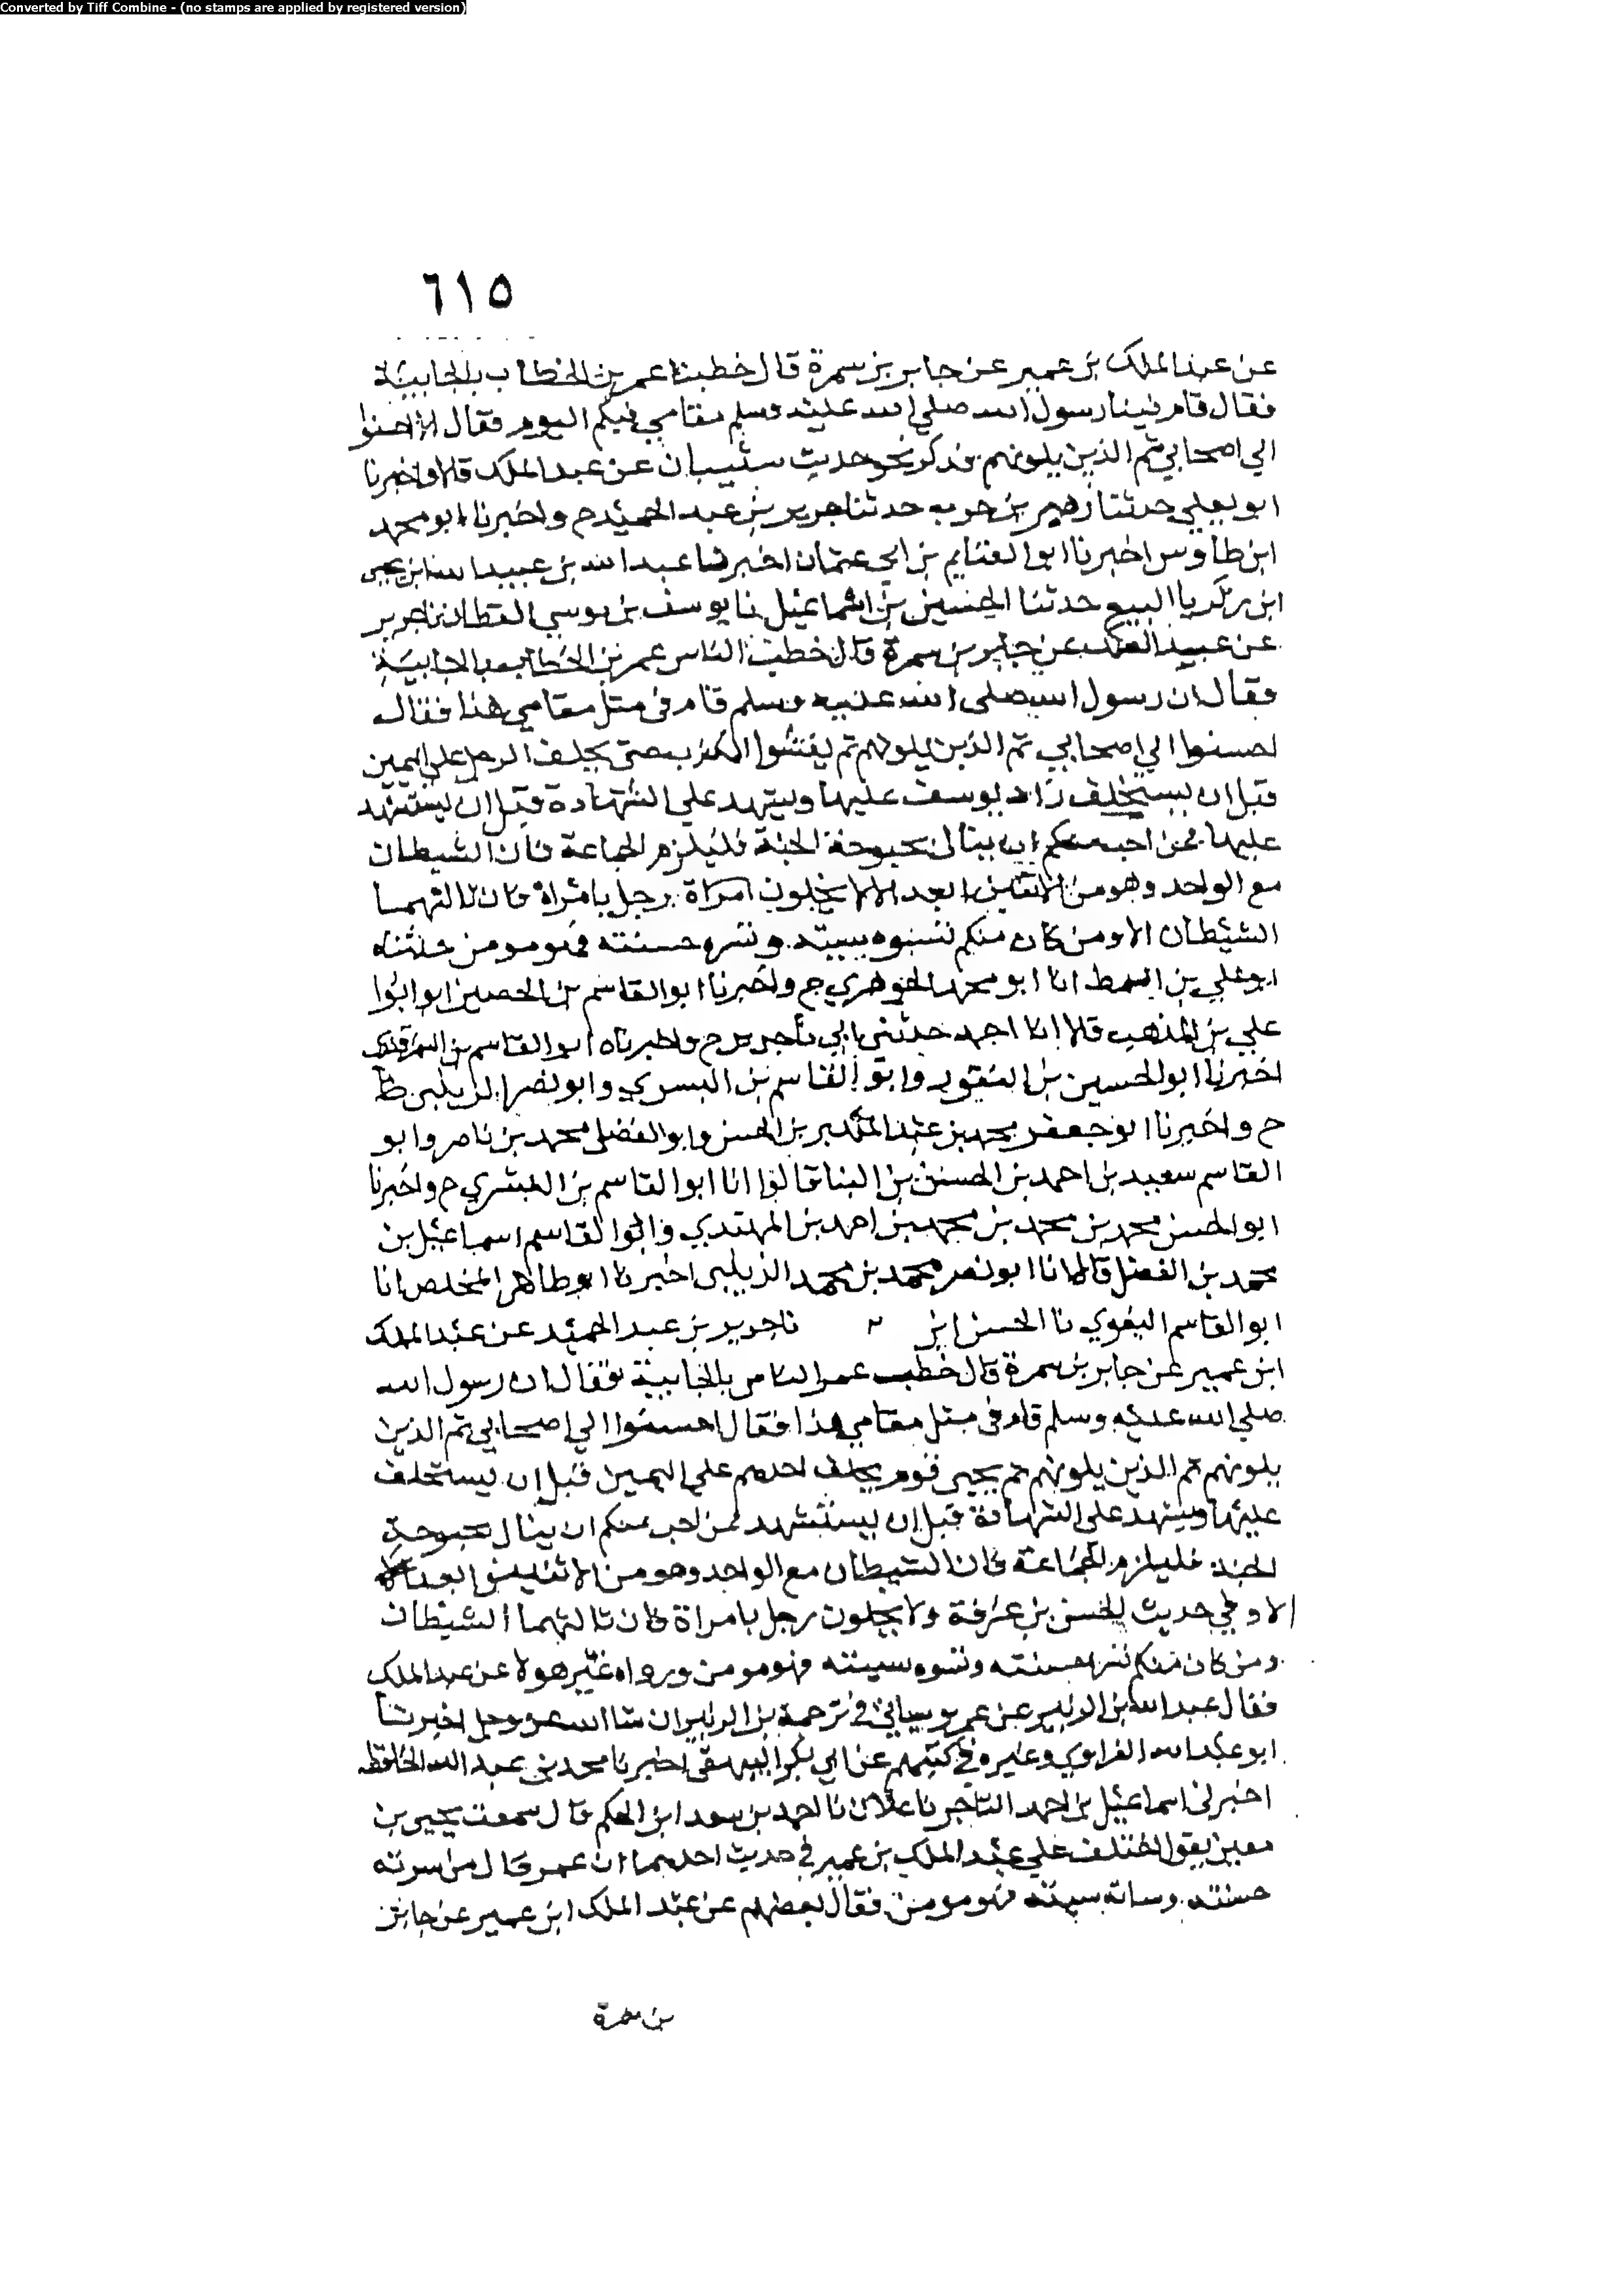 Converted by Tiff Combine - (no stamps are applied by registered version)
٦١٥
عن عبد الملك بن عمير عن جابر بن سمرة قال خطبنا عمر بن الخطاب بالجابية
فقال قام فينا رسول الله صلي الله عليه وسلم مقامي فيكم اليوم فقال الا احسنوا
الي اصحابي ثم الذين يلونهم فذكر نحو حديث شيبان عن عبد الملك قالا واخبرنا
ابو يعلي حدثنا زهير بن حرب حدثنا جرير بن عبد الحميد ح واخبرنا ابو محمد
ابن طاوس اخبرنا ابو الغنايم بن ابي عثمان اخبرنا عبد الله بن عبيد الله ابن يحيى
ابن زكريا البيع حدثنا الحسين بن اسماعيل نا يوسف بن موسي القطان نا جرير
عن عبد الملك عن جابر بن سمرة قال خطب الناس عمر بن الخطاب بالجابية
فقال ان رسول الله صلى الله عليه وسلم قام في مثل مقامي هذا فقال
احسنوا الي اصحابي ثم الذين يلونهم ثم يفشوا الكذب حتى يحلف الرجل علي اليمين
قبل ان يستحلف زاد يوسف عليها ويشهد علي الشهادة قبل ان يستشهد
عليها فمن احب منكم ان ينال بحبوحة الجنة فليلزم الجماعة فان الشيطان
مع الواحد وهو من الاثنين ابعد الا لا يخلون امراة رجل بامراة فان ثالثهما
الشيطان الا ومن كان منكم تسوه سيته وتسره حسنته فهو مومن حدثناه
ابو علي بن السبط انا ابو محمد الجوهري ح واخبرنا ابو القاسم بن الحصين ابو ابوا
علي بن المذهب قالا انا احمد حدثني ابي نا جرير ح واخبرناه ابو القاسم بن السمرقندي
اخبرنا ابو الحسين بن النقور وابو القاسم بن البسري وابو نصر الزيلبي
ح واخبرنا ابو جعفر محمد بن عبد المتكبر بن الحسن وابو الفضل محمد بن ناصر وابو
القاسم سعيد بن احمد بن الحسن بن البنا قالوا انا ابو القاسم بن البسري ح واخبرنا
ابو الحسن محمد بن محمد بن محمد بن احمد بن المهتدي وابو القاسم اسماعيل بن
محمد بن الفضل قالا انا ابو نصر محمد بن محمد الزيلبي اخبرنا ابو طاهر المخلص انا
ابو القاسم البغوي نا الحسن ابن نا جرير بن عبد الحميد عن عبد الملك
ابن عمير عن جابر بن سمرة قال خطب عمر الناس بالجابية فقال ان رسول الله
صلي الله عليه وسلم قام في مثل مقامي هذا فقال احسنوا الي اصحابي ثم الذين
يلونهم ثم الذين يلونهم ثم يجي قوم يحلف احدهم علي اليمين قبل ان يستحلف
عليها ويشهد على الشهادة قبل ان يستشهد فمن احب منكم ان ينال بحبوحة
الجنة فليلزم الجماعة فان الشيطان مع الواحد وهو من الاثنين ابعد
الا وفي حديث الحسن بن عرفة ولا يخلون رجل بامراة فان ثالثهما الشيطان
ومن كان منكم تسره حسنته وتسوه سيئته فهو مومن ورواه غير هولا عن عبد الملك
فقال عبد الله بن الزبير عن عمر وسياتي في ترجمة بن الزبير ان شا الله عز وجل اخبرنا
ابو عبد الله الفراوي وغيره في كتبهم عن ابي بكر البيهقي اخبرنا محمد بن عبد الله الحافظ
اخبرني اسماعيل بن احمد التاجر نا علان نا احمد بن سعد ابن الحكم قال سمعت يحيى بن
معين يقول اختلف علي عبد الملك بن عمير في حديث احدهما ان عمر قال من سرته
حسنته وساته سيئته فهو مومن فقال بعضهم عن عبد الملك ابن عمير عن جابر
بن سمرة